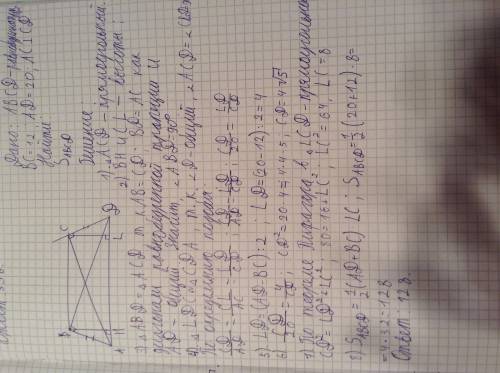 Дано: ABCD - равнобедр.
BC=12; AD=20; AC⊥CD
Найти
S ABCD
Решение
1) △ACD - прямоугольный.
2) BH и CL - высоты;
3) △ABD = △ACD, т.к. AB=CD; BD=AC как
диагонали равнобедренной трапеции и
AD - общая. Значит, ∠ABD=90°
4) △LDC ~ △CDA, т.к. ∠D общий, ∠ACD=∠CLD
По определению подобия
CD/AD = CL/AC = LD/CD; CD/AD = LD/CD; CD/20 = LD/CD
5) LD=(AD-BC):2; LD=(20-12):2=4
6) CD/20 = 4/CD; CD²=20·4=4·4·5; CD=4√5
7) По теореме Пифагора в △LCD - прямоугольном
CD²=LD²+LC²; 80=16+LC²; LC²=64, LC=8
8) S ABCD=½(AD+BC)·LC; S ABCD=½(20+12)·8=
=4·32=128
Ответ: 128.
B
C
A
H
L
D